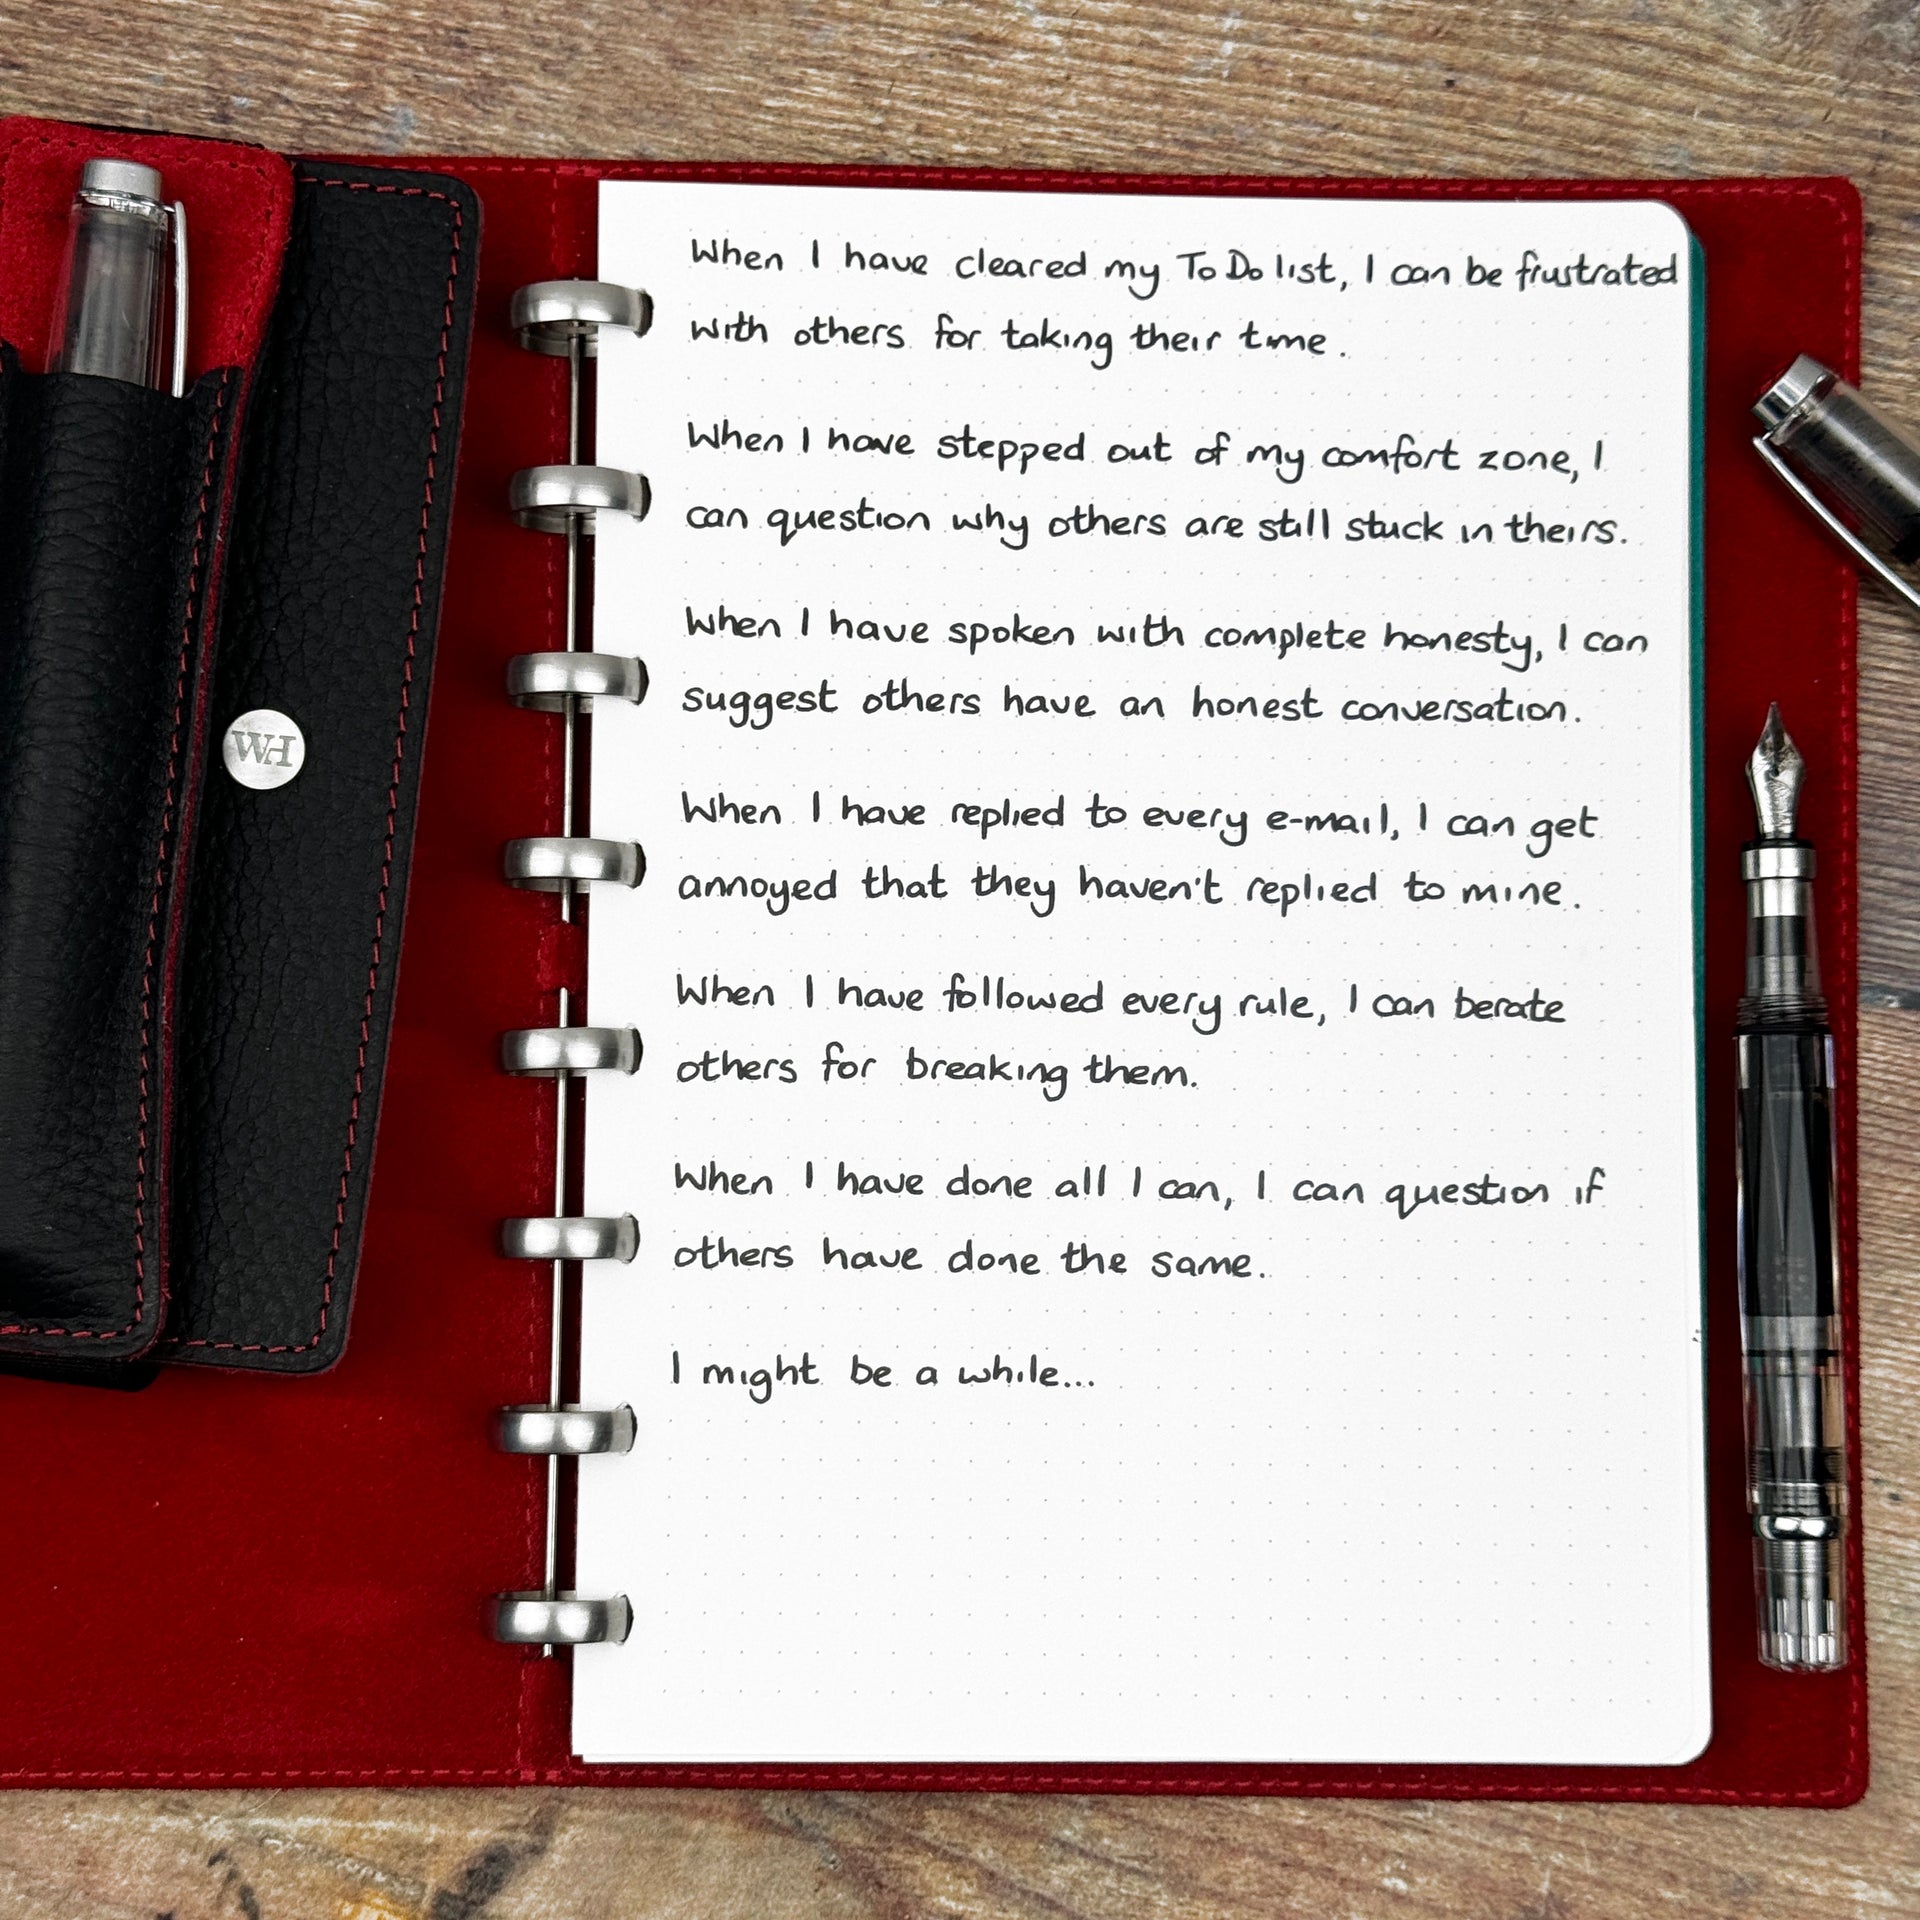 When I have cleared my To Do list, I can be frustrated
with others for taking their time.
When I have stepped out of my comfort zone, I
can question why others are still stuck in theirs.
When I have spoken with complete honesty, I can
suggest others have an honest conversation.
When I have replied to every e-mail, I can get
annoyed that they haven't replied to mine.
When I have followed every rule, I can berate
others for breaking them.
When I have done all I can, I can question if
others have done the same.
I might be a while...
WH